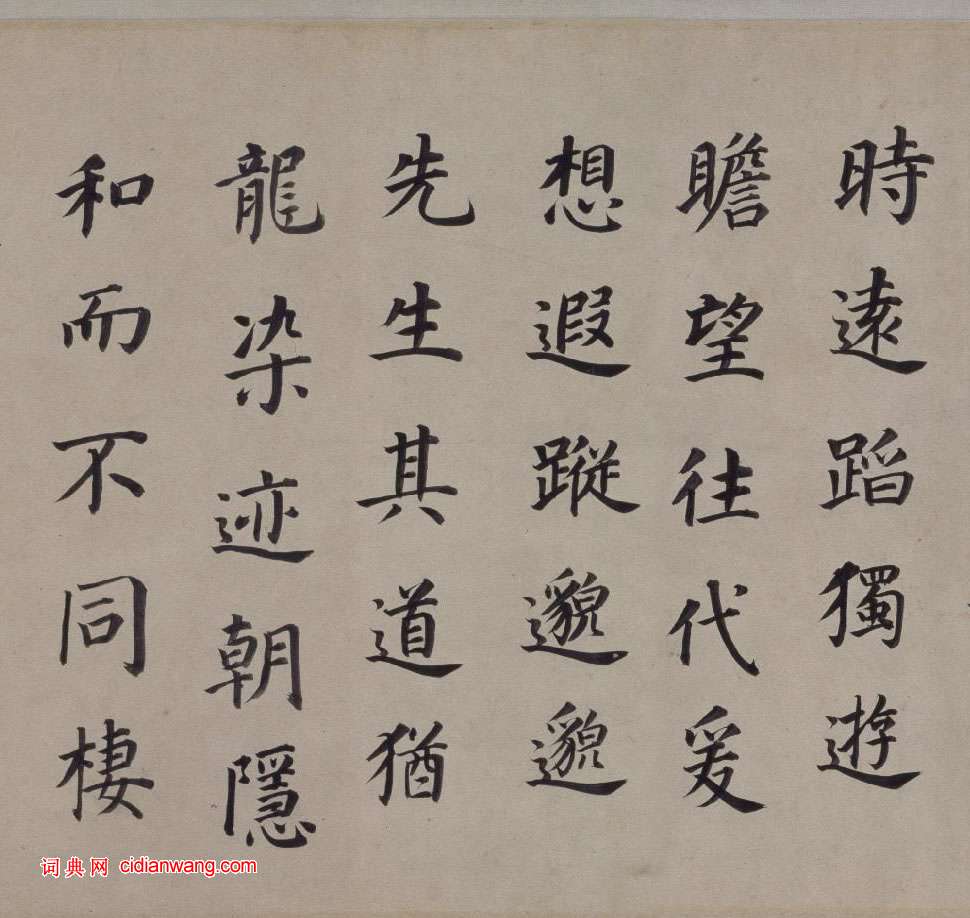 時遠蹈獨遊
瞻望往代爰
想遐蹤邈邈
先生其道猶
龍染迹朝隱
和而不同棲
词典网 cidianwang.com